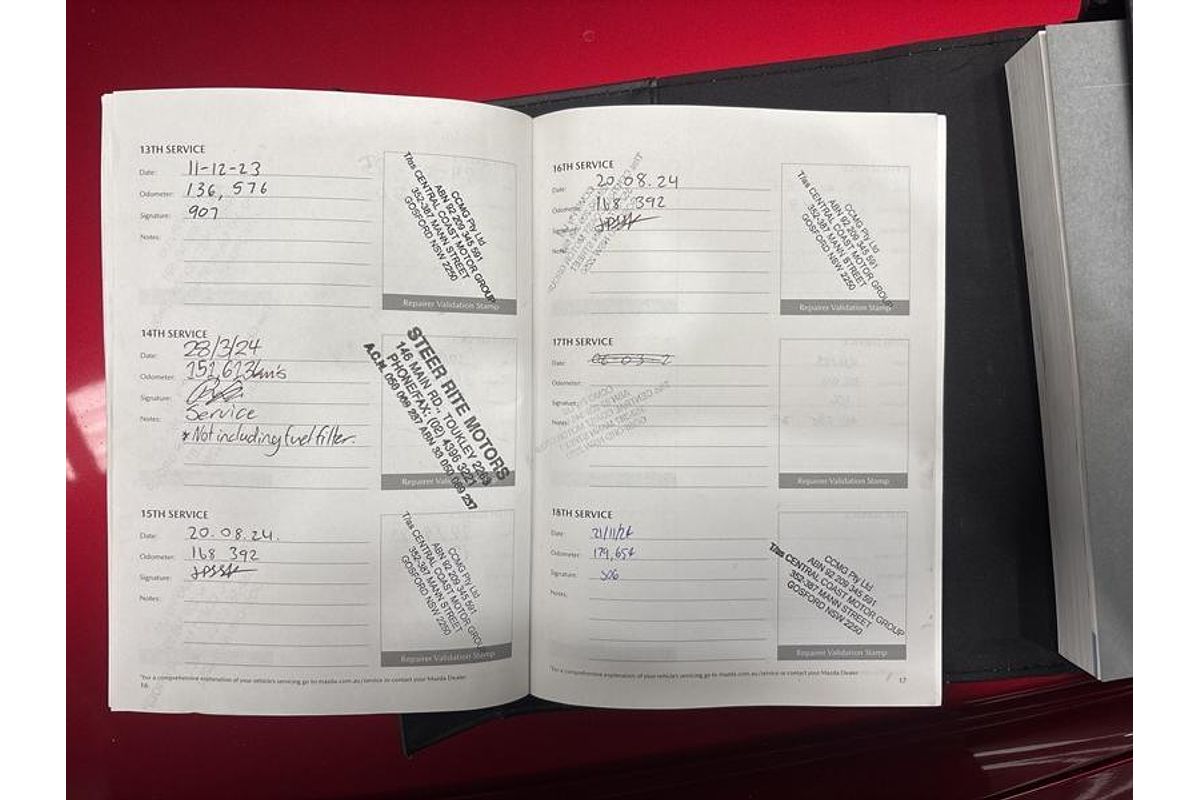 13TH SERVICE
Date: 11-12-23
Odometer: 136,576
Signature: 907
Notes:
CCMG Pty Ltd
ABN 92 209 345 591
T/as CENTRAL COAST MOTOR GROUP
352-387 MANN STREET
GOSFORD NSW 2250
Repairer Validation Stamp
14TH SERVICE
Date: 28/3/24
Odometer: 151,613km's
Signature:
Notes: Service
*Not including fuel filter.
STEER RITE MOTORS
146 MAIN RD., TOUKLEY 2263
PHONE/FAX: (02) 4396 3221
A.C.N. 050 069 237 ABN 33 050 069 237
Repairer Validation Stamp
15TH SERVICE
Date: 20.08.24.
Odometer: 168 392
Signature:
Notes:
CCMG Pty Ltd
ABN 92 209 345 591
T/as CENTRAL COAST MOTOR GROUP
352-387 MANN STREET
GOSFORD NSW 2250
Repairer Validation Stamp
*For a comprehensive explanation of your vehicle's servicing go to mazda.com.au/service or contact your Mazda Dealer
16
16TH SERVICE
Date: 20.08.24
Odometer: 168 392
Signature:
Notes:
CCMG Pty Ltd
ABN 92 209 345 591
T/as CENTRAL COAST MOTOR GROUP
352-387 MANN STREET
GOSFORD NSW 2250
Repairer Validation Stamp
17TH SERVICE
Date: 06-03-2
Odometer:
Signature:
Notes:
Repairer Validation Stamp
18TH SERVICE
Date: 21/11/24
Odometer: 179,654
Signature: 506
Notes:
CCMG Pty Ltd
ABN 92 209 345 591
T/as CENTRAL COAST MOTOR GROUP
352-387 MANN STREET
GOSFORD NSW 2250
Repairer Validation Stamp
*For a comprehensive explanation of your vehicle's servicing go to mazda.com.au/service or contact your Mazda Dealer
17